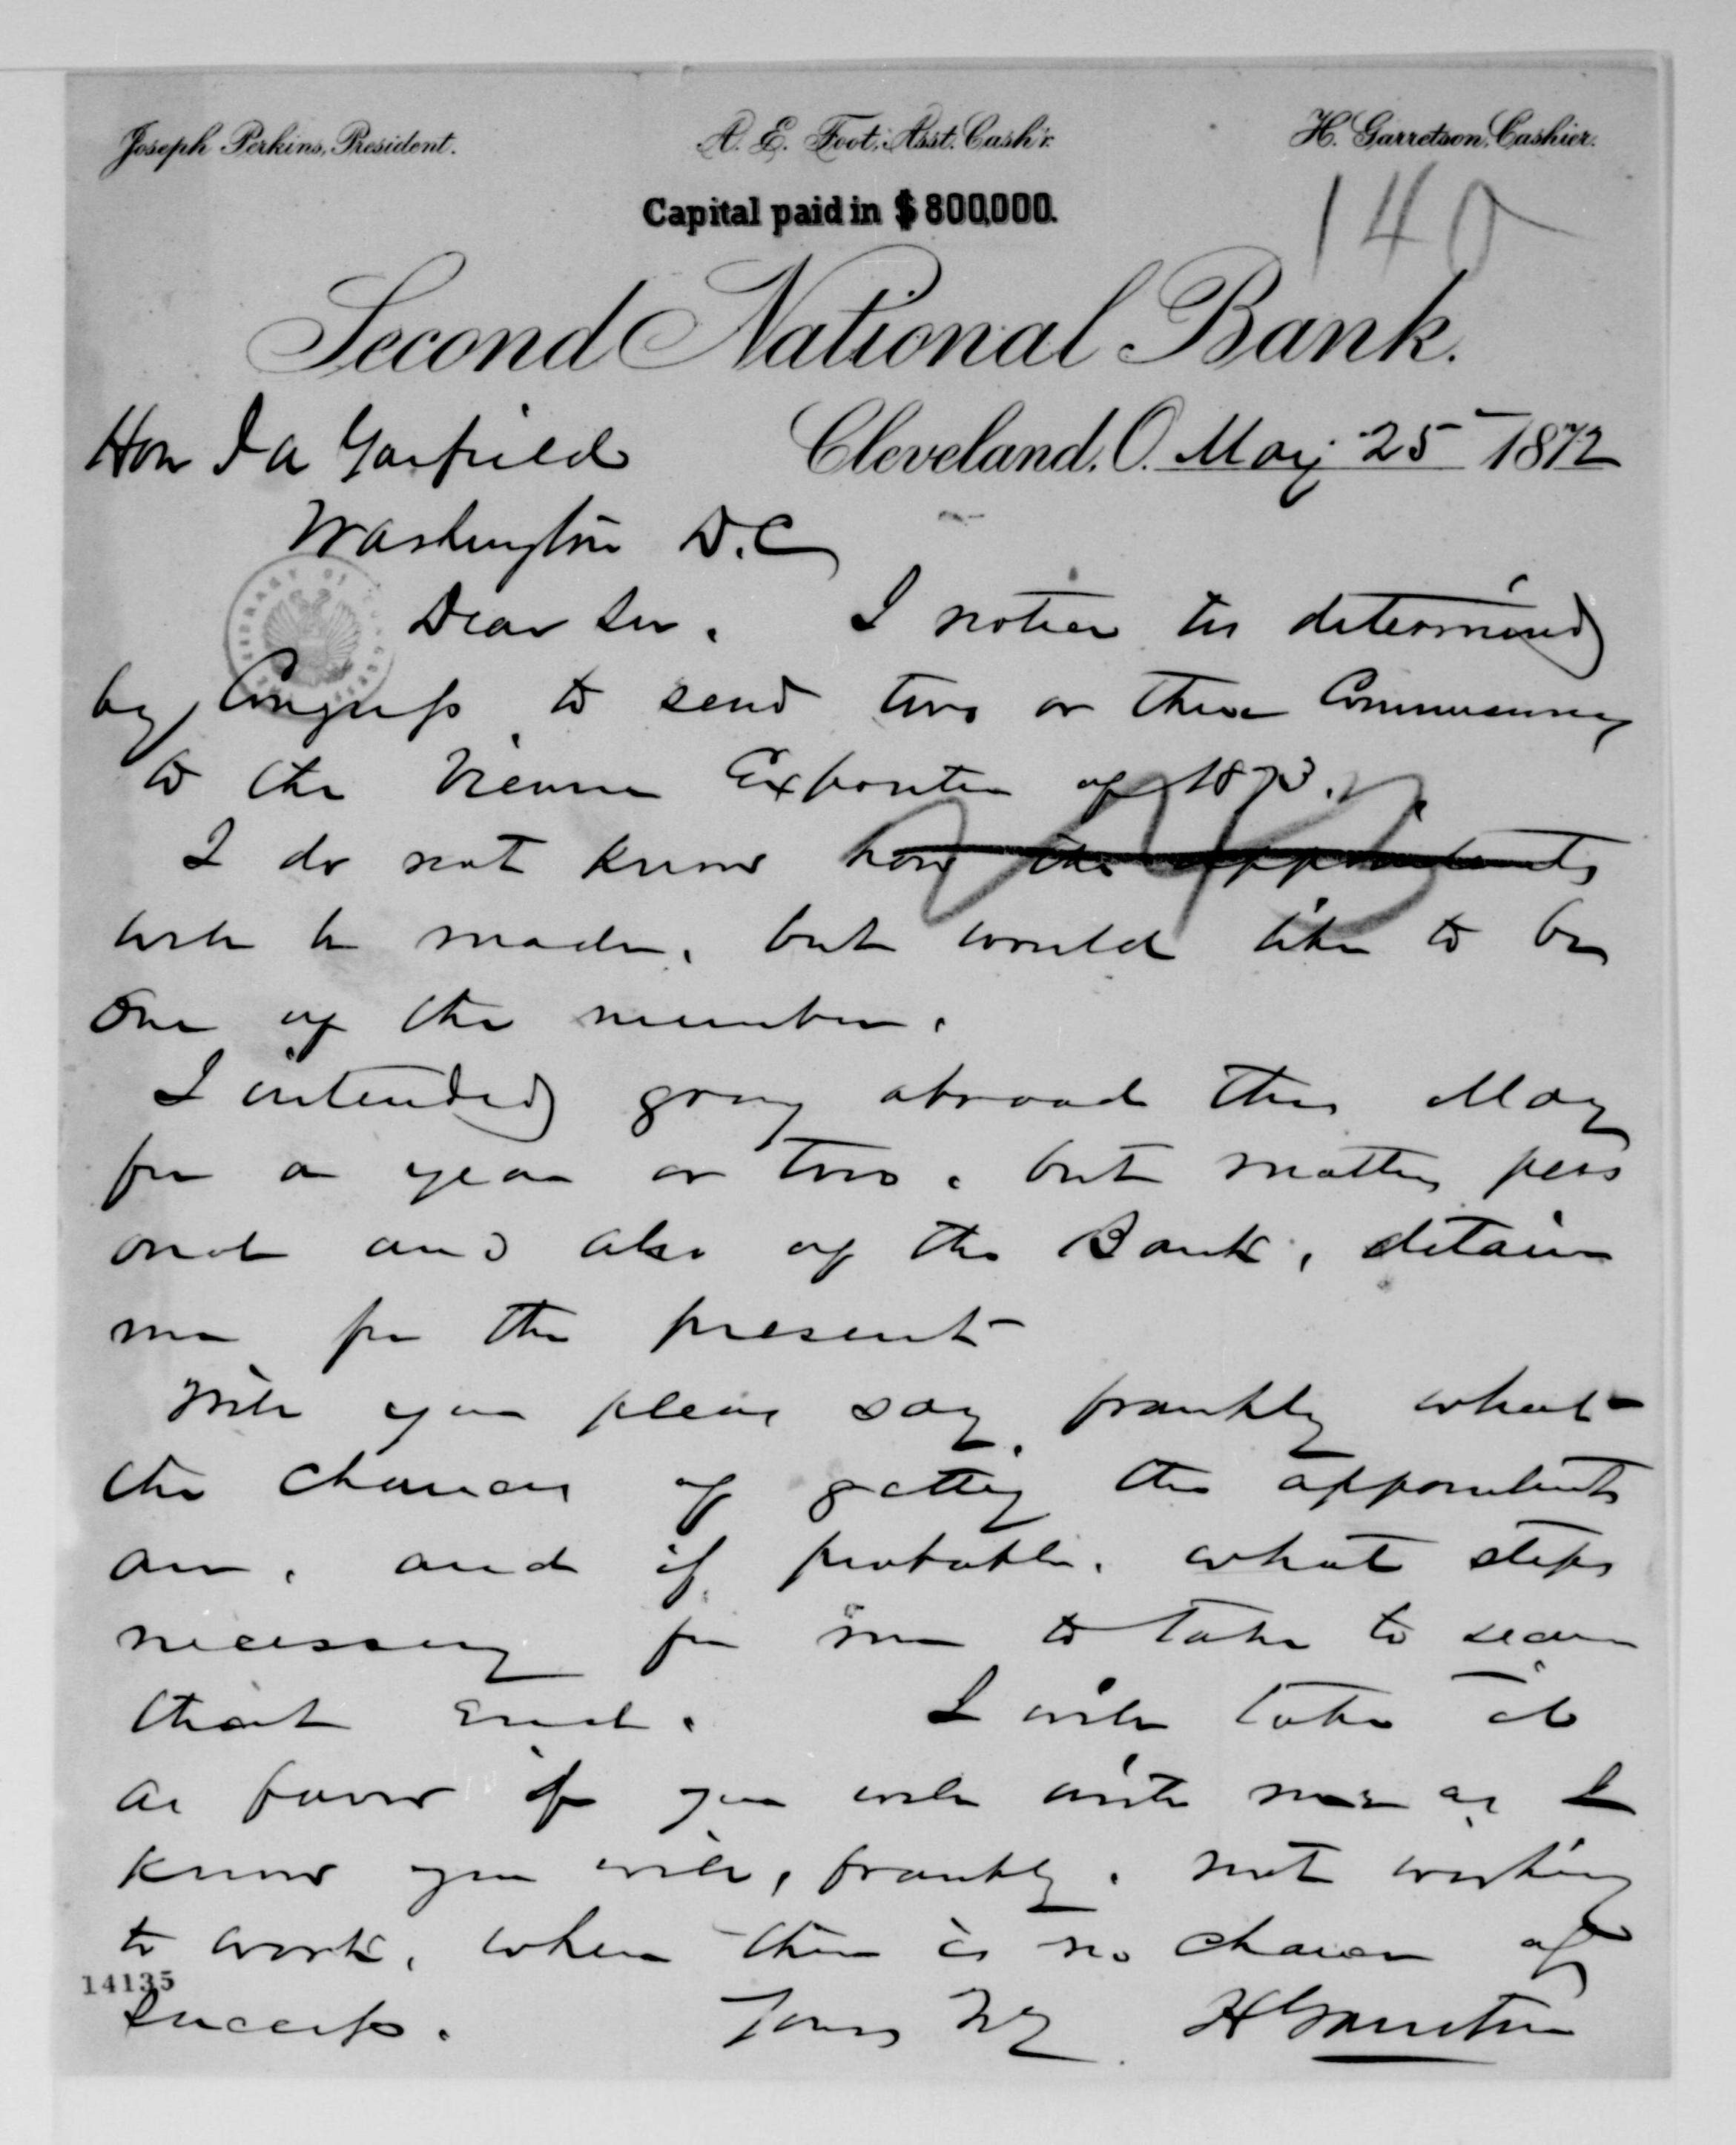 Joseph Perkins, President. A. E. Foot, Asst. Cash'r. H. Garretson, Cashier.
Capital paid in $800,000.
140
Second National Bank.
Hon J A Garfield Cleveland, O. May 25 1872
Washington D.C
LIBRARY OF CONGRESS
Dear Sir. I notice tis determined
by Congress to send two or three Commissioners
to the Vienna Exposition of 1873.
I do not know how the appointments
will be made, but would like to be
one of the number.
I intended going abroad this May
for a year or two. but matters pers
onal and also of the Bank, detain
me for the present
Will you please say, frankly what
the chances of getting the appointment
are, and if probable, what steps
necessary for me to take to secure
that end. I will take it
as favor if you will write me as I
know you will, frankly. not wishing
to work, when there is no chance of
14135
success. Yours Try H Garretson